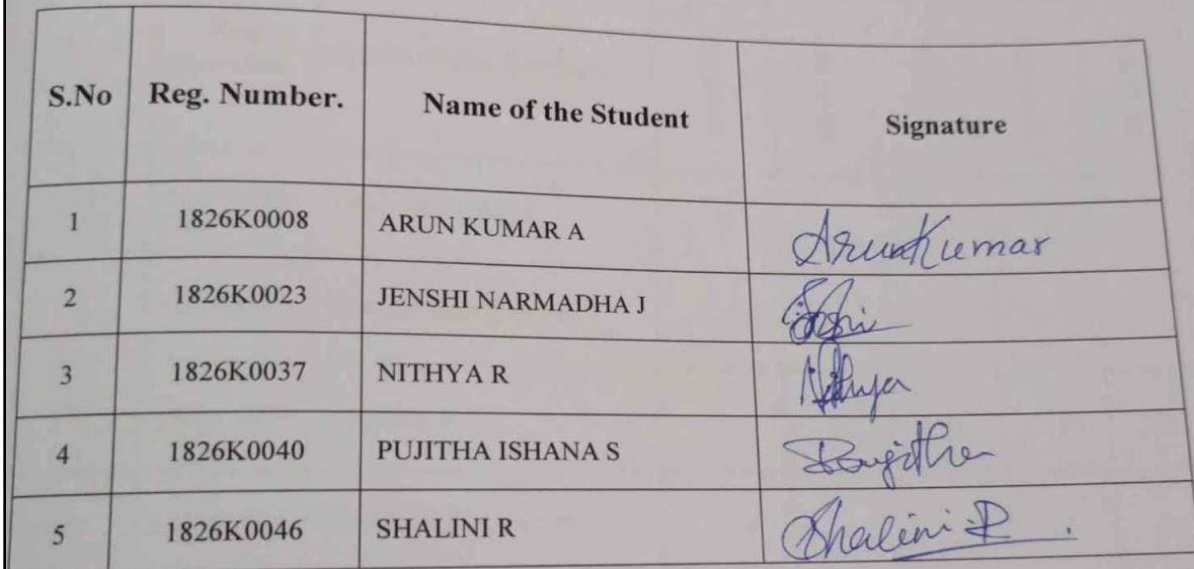 S.No Reg. Number. Name of the Student Signature
1 1826K0008 ARUN KUMAR A ArunKumar
2 1826K0023 JENSHI NARMADHA J
3 1826K0037 NITHYA R Nithya
4 1826K0040 PUJITHA ISHANA S Poujitha
5 1826K0046 SHALINI R Shalini R.